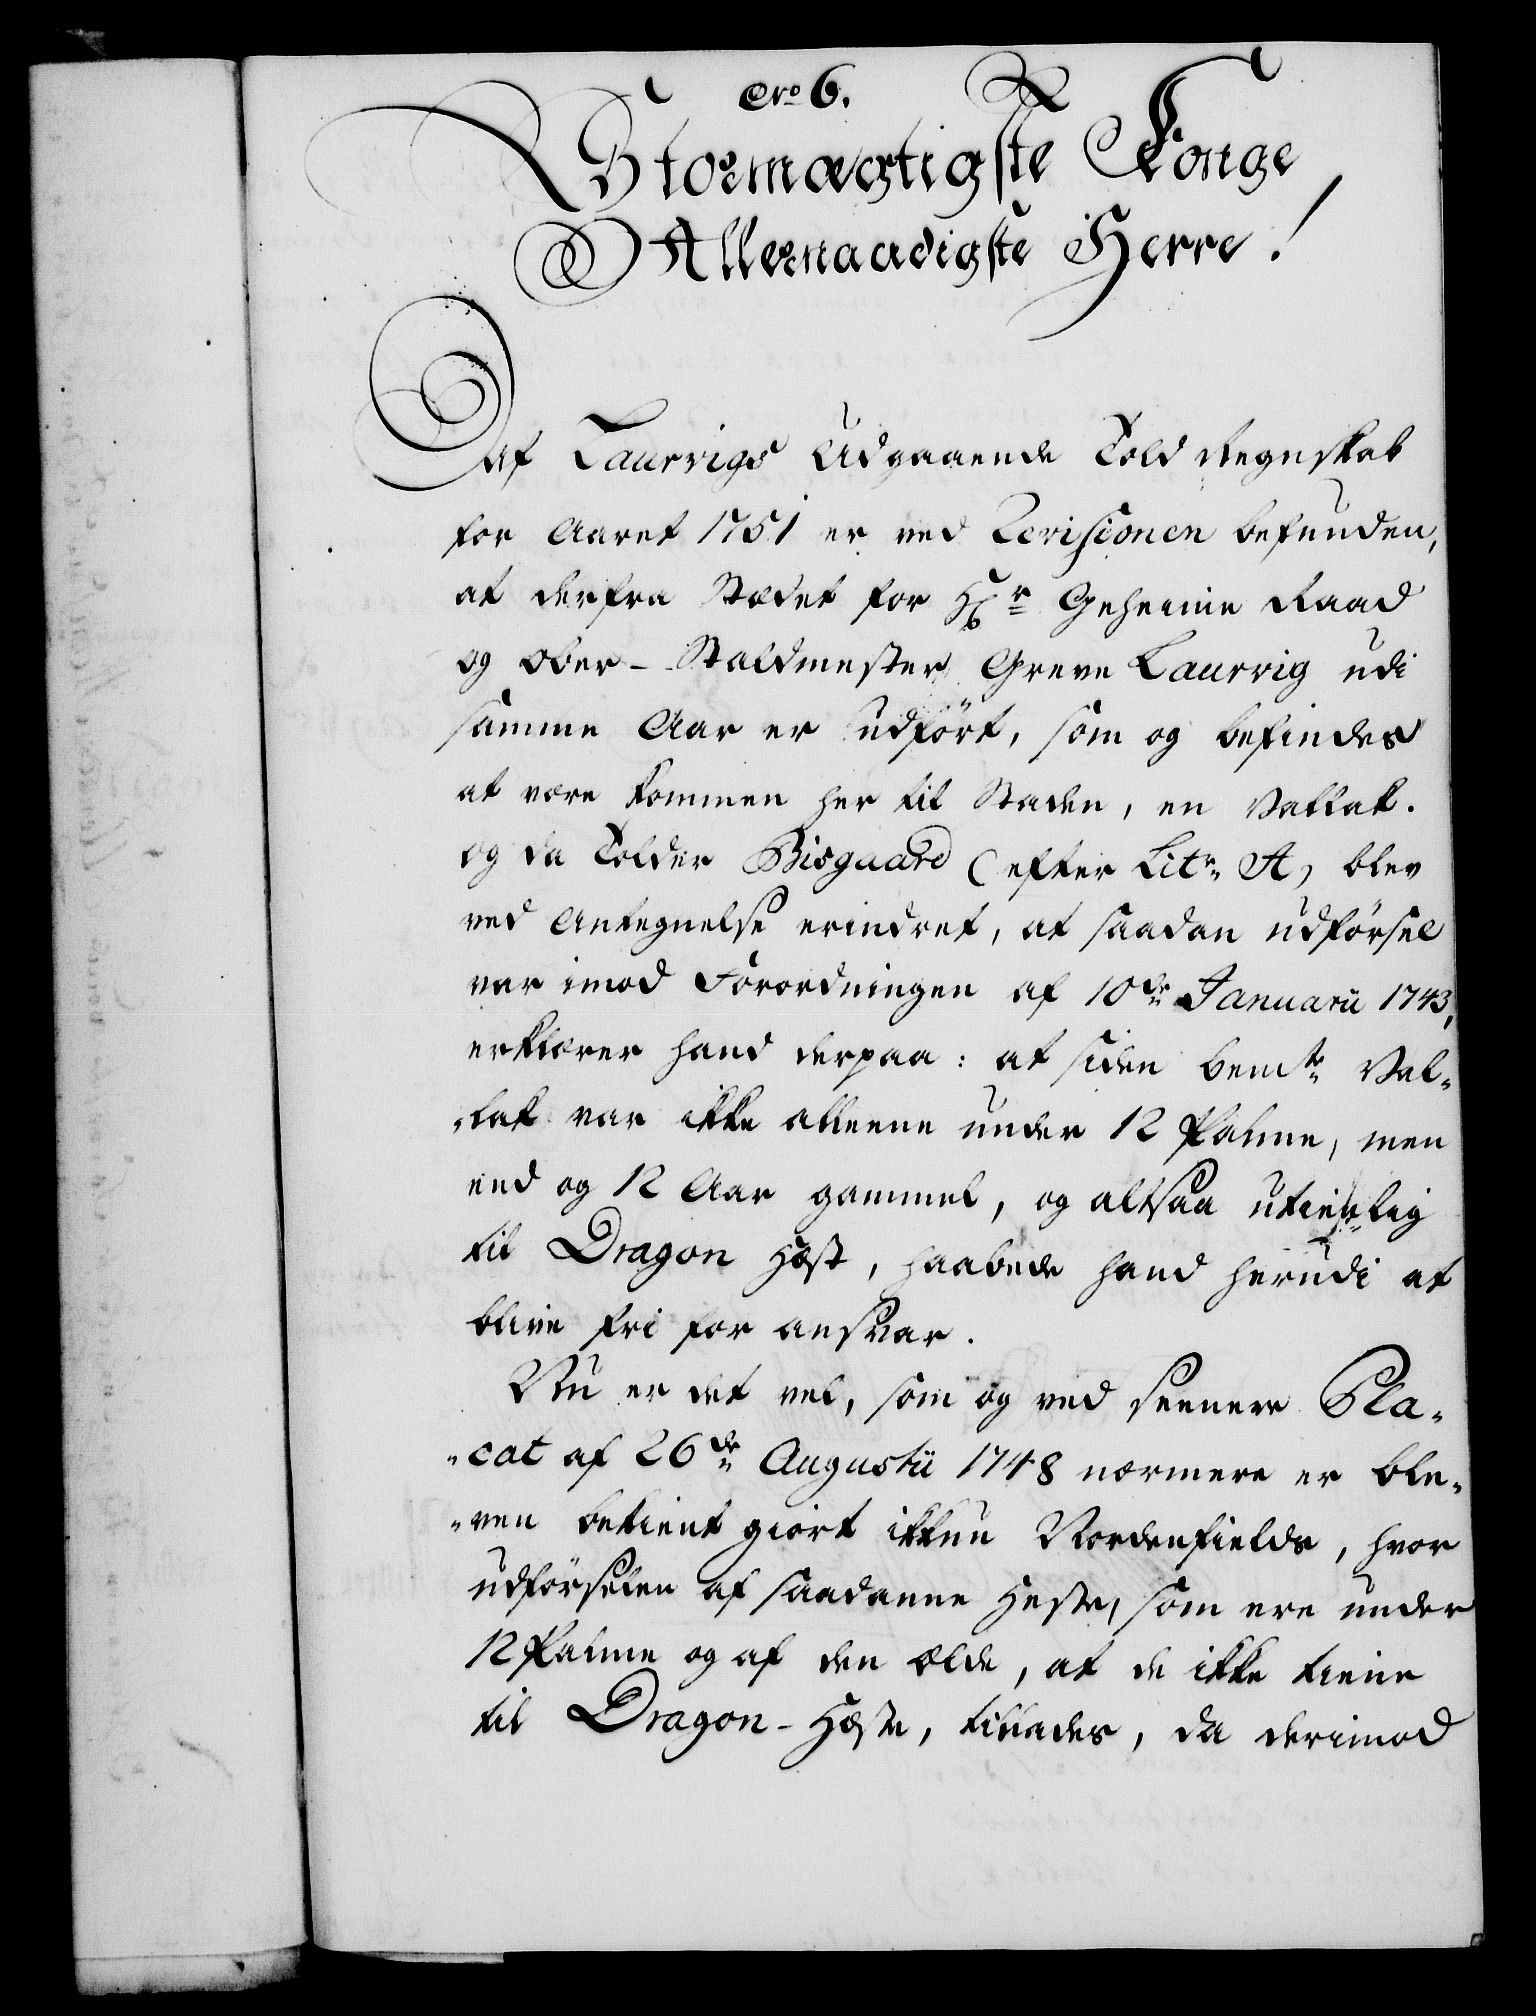 No 6.
Stormægtigste Konge
Allernaadigste Herre!
Af Laurvigs Udgaaende Told Regnskab
for Aaret 1751 er ved Revisionen befunden,
at derfra Stædet for Hr Geheime Raad
og Ober-Staldmester Greve Laurvig udi
samme Aar er udført, som og befindes
at være kommen her til Staden, en Vallak.
og da Tolder Bisgaard (efter Litr. A) blev
ved Antegnelse erindret, at saadan udførsel
var imod Forordningen af 10de Januarii 1743,
erklærer hand derpaa: at siden bemte Val-
lak var ikke alleene under 12 Palme, men
end og 12 Aar gammel, og altsaa utienlig
til Dragon Hest, haabede hand herudi at
blive fri for ansvar.
Nu er det vel, som og ved seenere Pla-
cat af 26de Augustii 1748 nærmere er ble-
ven bekient giort ikkun Nordenfields, hvor
udførselen af saadanne Heste, som ere under
12 Palme og af den ælde, at de ikke tiene
til Dragon-Heste, tillades, da derimod